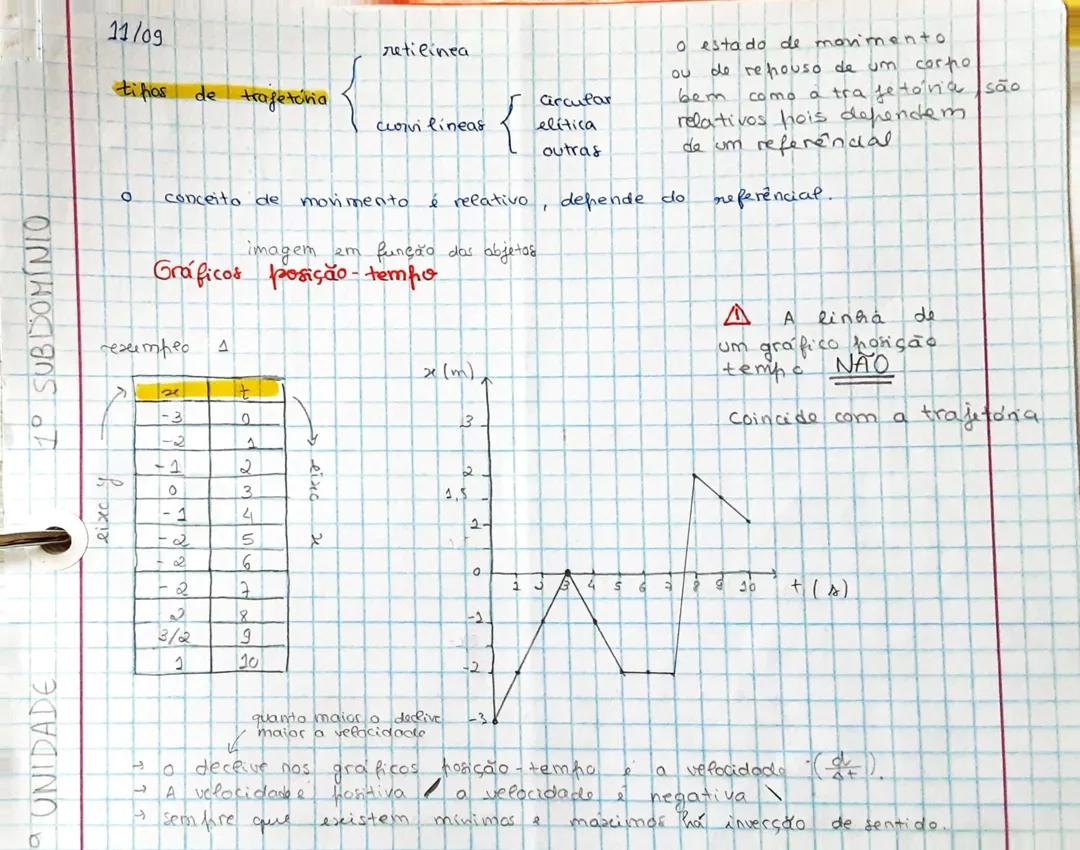 11/09
retilínea
tipos de trajetória
curvilíneas
circular
elítica
outras
o estado de movimento
ou de repouso de um corpo
bem como a trajetória, são
relativos pois dependem
de um referêncial
O conceito de movimento é relativo, depende do referêncial.
imagem em função dos objetos
Gráficos posição-tempo
⚠ A linha de
um gráfico posição
tempo NÃO
coincide com a trajetória
exemplo 1
x t
-3 0
-2 1
-1 2
0 3
-1 4
-2 5
-2 6
-2 7
2 8
3/2 9
1 10
eixo y
eixo x
x (m)
3
2
1,5
0
-1
-2
-3
1 2 3 4 5 6 7 8 9 10 t (s)
quanto maior o declive
maior a velocidade
→ o declive nos gráficos posição-tempo é a velocidade
→ A velocidade é positiva / a velocidade é negativa \
→ sempre que existem mínimos e máximos há inverção de sentido.
1º SUBDOMÍNIO
UNIDADE